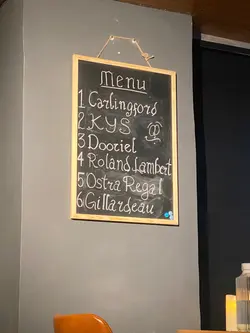 Menu
1 Carlingford
2 KYS
3 Dooriel
4 Roland Lambert
5 Ostra Regal
6 Gillardeau